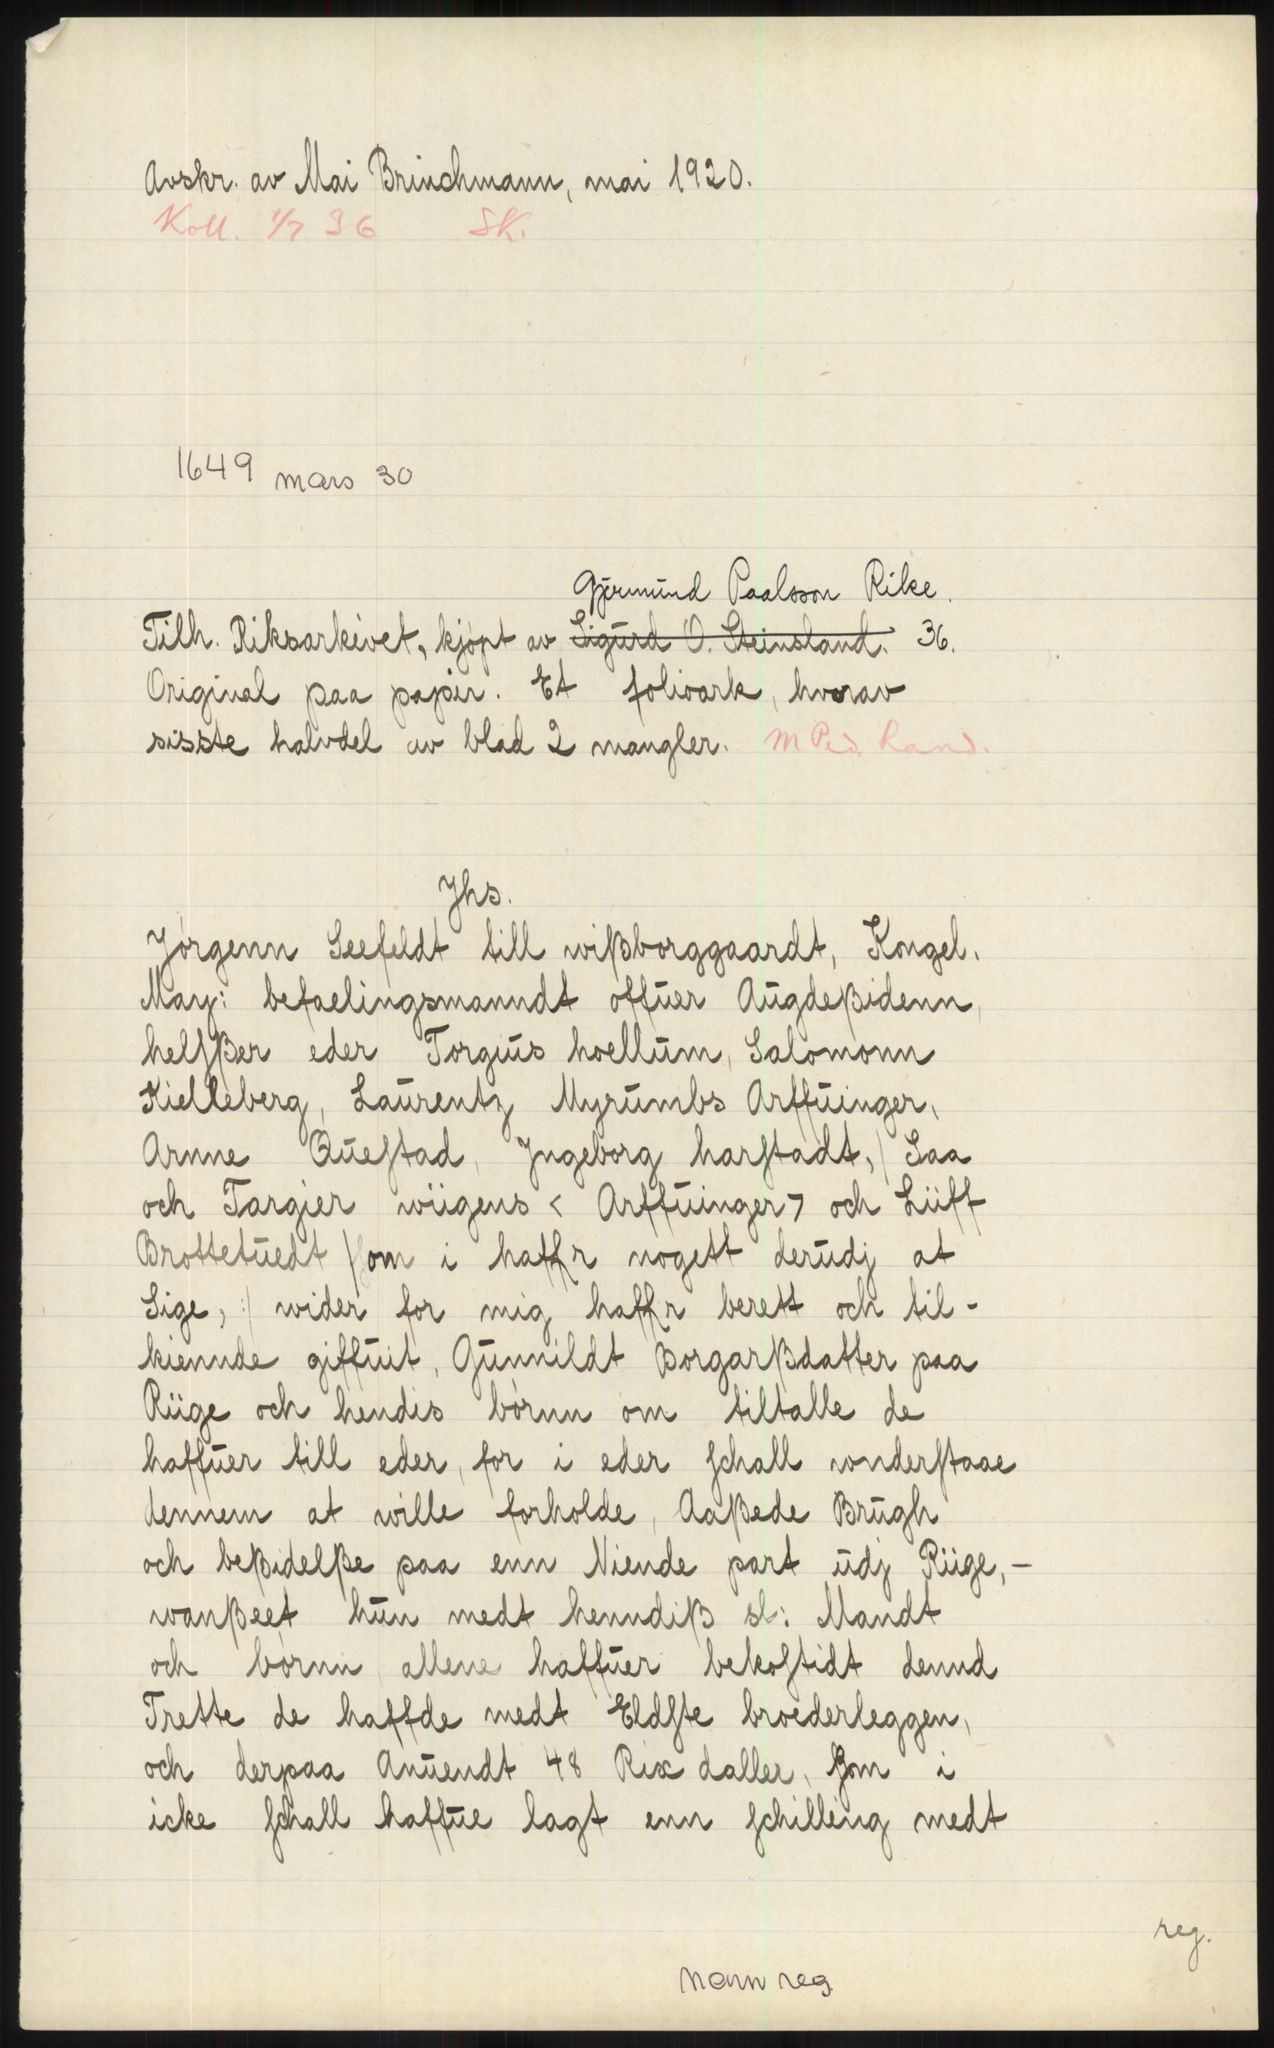 Avskr. av Mai Brinchmann, mai 1920.
Koll. 1/7 36 SK.
1649 mars 30
Gjermund Paalsson Rike.
Tilh. Riksarkivet, kjøpt av Sigurd O. Steinsland. 36.
Original paa papir. Et folioark, hvorav
sisste halvdel av blad 2 mangler. M Ped. Rand.
Jhs.
Jørgenn Seefeldt till wißborggaardt, Kongel.
May: befaelingsmanndt offuer Augdeßidenn,
helſßer eder Torgius hoellum, Salomonn
Kielleberg, Laurentz Myrumbs Arffuinger,
Arnne Queſtad, Jngeborg harſtadt, / Saa
och Targier wiigens < Arffuinger > och Liiff
Brottetuedt / ſom i haffr nogett derudj at
Sige, :/ wider for mig haffr berett och til-
kiennde giffuit, Gunnildt Borgarßdatter paa
Riige och hendis børnn om tiltalle de
haffuer till eder, for i eder ſchall wnderſtaae
dennem at wille forholde, Aaßede Brugh
och beßidelße paa enn Niende part udj Riige, -
wanßeet hun medt henndiß sl: Mandt
och børnn allene haffuer bekoſtidt dennd
Trette de haffde medt Eldſte broederleggen,
och derpaa Anuendt 48 Rix daller, ſom i
icke ſchall haffue lagt enn ſchilling medt
reg.
navn reg